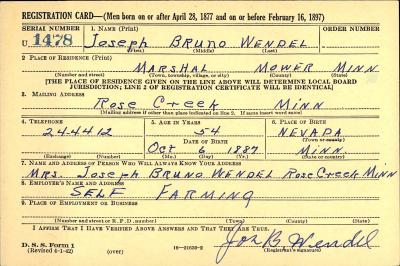 REGISTRATION CARD—(Men born on or after April 28, 1877 and on or before February 16, 1897)
SERIAL NUMBER 1. NAME (Print) ORDER NUMBER
U 1478 Joseph Bruno Wendel
(First) (Middle) (Last)
2. PLACE OF RESIDENCE (Print)
Marshal Mower Minn
(Number and street) (Town, township, village, or city) (County) (State)
[THE PLACE OF RESIDENCE GIVEN ON THE LINE ABOVE WILL DETERMINE LOCAL BOARD
JURISDICTION; LINE 2 OF REGISTRATION CERTIFICATE WILL BE IDENTICAL]
3. MAILING ADDRESS
Rose Creek Minn
[Mailing address if other than place indicated on line 2. If same insert word same]
4. TELEPHONE 5. AGE IN YEARS 6. PLACE OF BIRTH
24-4412 54 Nevada
DATE OF BIRTH (Town or county)
Oct 6 1887 Minn.
(Exchange) (Number) (Mo.) (Day) (Yr.) (State or country)
7. NAME AND ADDRESS OF PERSON WHO WILL ALWAYS KNOW YOUR ADDRESS
Mrs. Joseph Bruno Wendel Rose Creek Minn
8. EMPLOYER'S NAME AND ADDRESS
Self Farming
9. PLACE OF EMPLOYMENT OR BUSINESS
(Number and street or R. F. D. number) (Town) (County) (State)
I AFFIRM THAT I HAVE VERIFIED ABOVE ANSWERS AND THAT THEY ARE TRUE.
D. S. S. Form 1
(Revised 4-1-42) (over) 16—21630-2 Jos B. Wendel
(Registrant's signature)